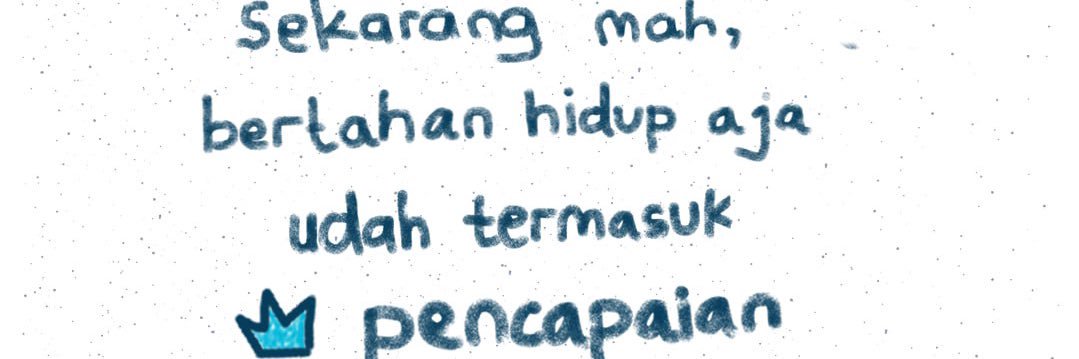 Sekarang mah,
bertahan hidup aja
udah termasuk
pencapaian